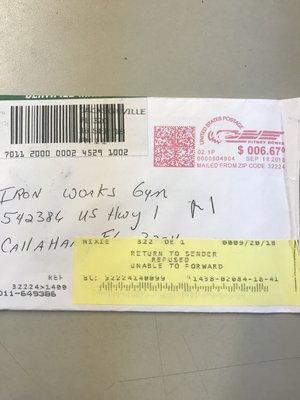 7011 2000 0002 4529 1002
UNITED STATES POSTAGE
PITNEY BOWES
02 1P
$ 006.67⁰
0000804904 SEP 18 2018
MAILED FROM ZIP CODE 32224
IRON WORKS GYM
542384 US Hwy 1
CALLAHAN FL
NIXIE 322 DE 1 0009/20/18
RETURN TO SENDER
REFUSED
UNABLE TO FORWARD
BC: 32224140099 *1438-02084-18-41
REF
32224>1400
011-649386